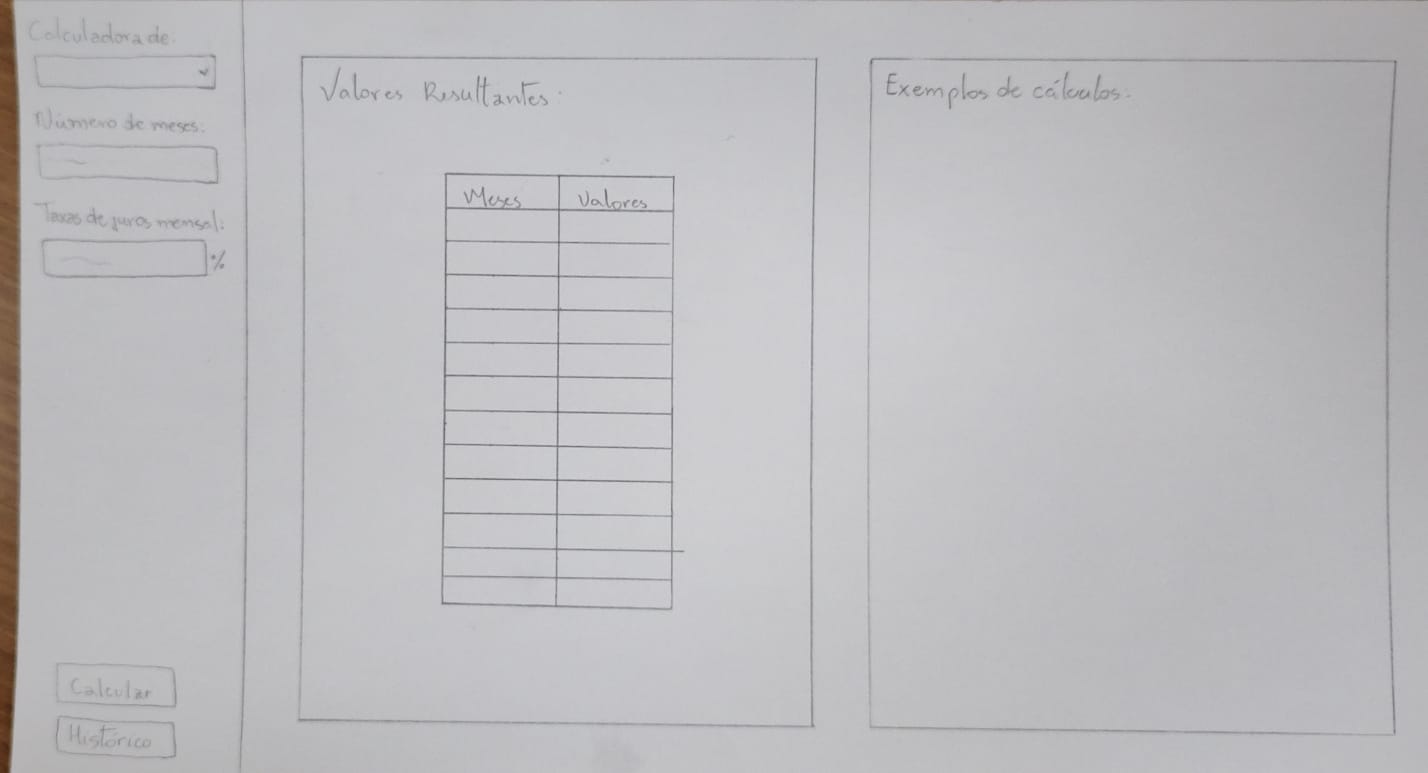 Calculadora de:
Número de meses:
Taxas de juros mensal:
%
Calcular
Histórico
Valores Resultantes:
Meses Valores
Exemplos de cálculos: